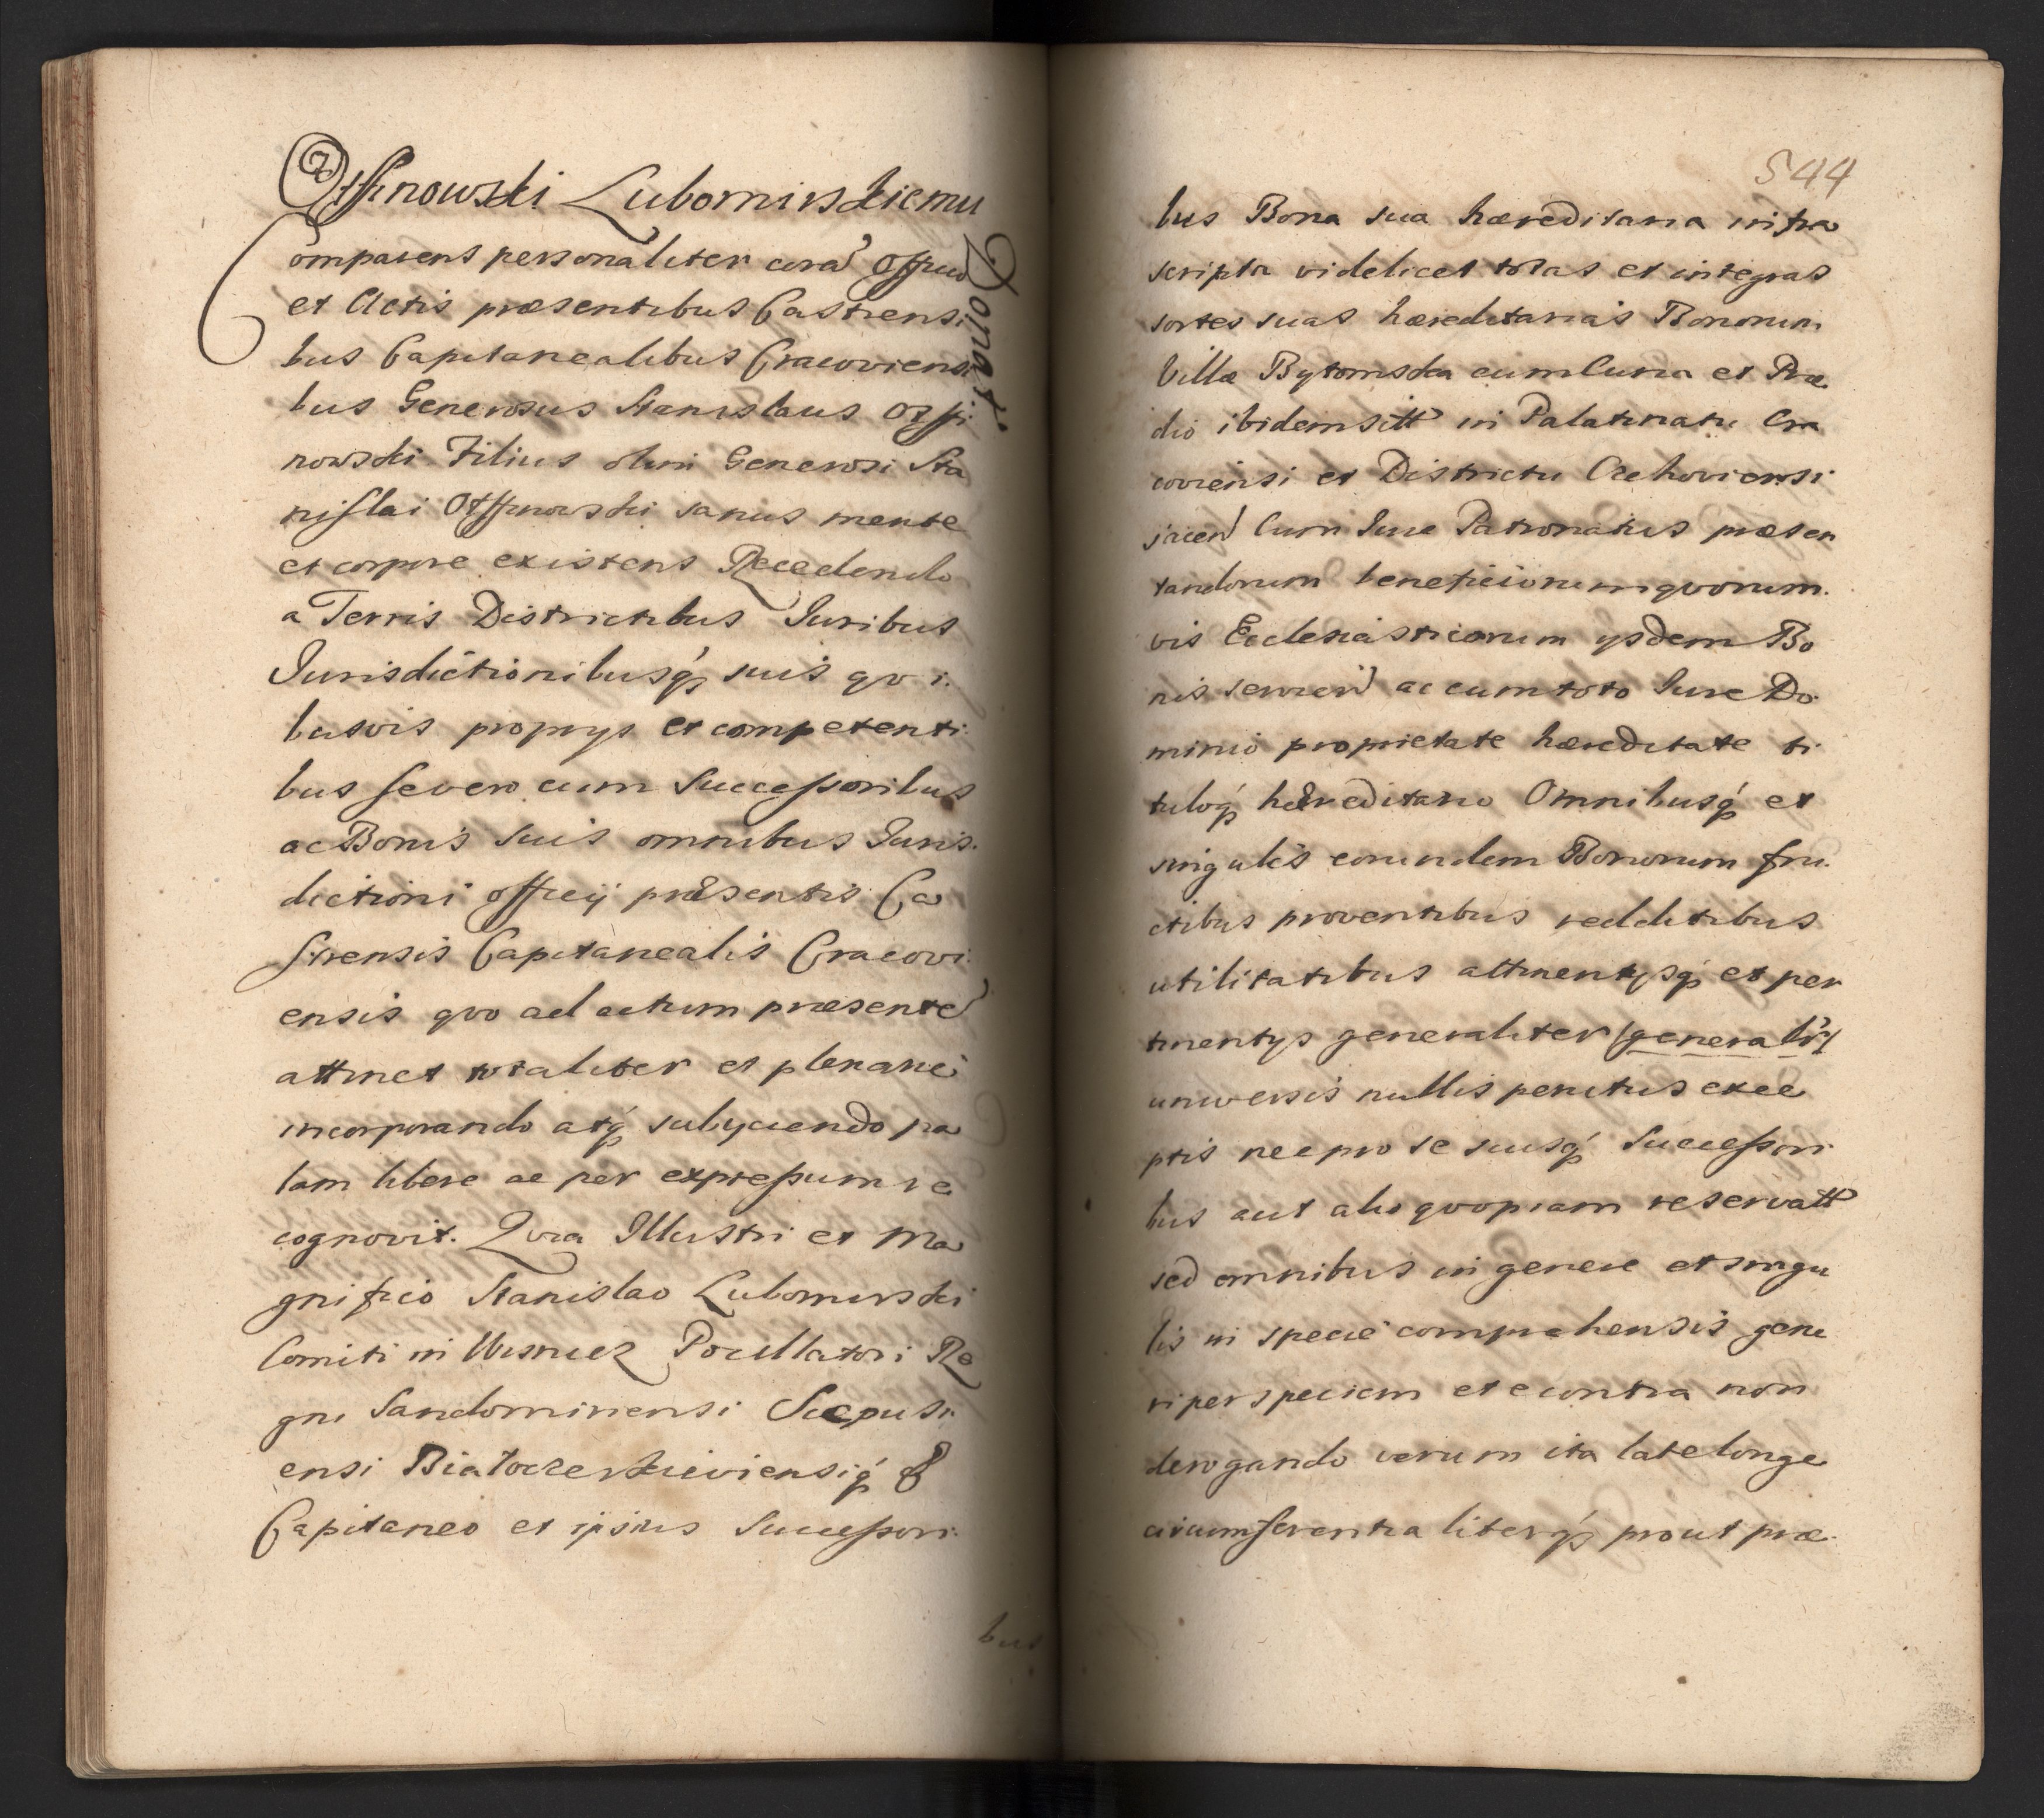 Otffinowski Lubomirskiemu
Donat.
Comparens personaliter corā Officio
et Actis præsentibus Castrensi
bus Capitanealibus Cracoviensi
bus Generosus Stanislaus Otffi
nowski Filius olim Generosi Sta
nislai Otffinowski sanus mente
et corpore existens Recedendo
a Terris Districtibus Iuribus
Iurisdictionibusq́ suis qvi
busvis proprys et competenti
bus se vero cum Successoribus
ac Bonis suis omnibus Juris
dictioni officij præsentis Ca
strensis Capitanealis Cracovi
ensis qvo ad actum præsente
attinet totaliter et plenarie
incorporando atq́ subyciendo pa
lam libere ac per expressum re
cognovit. Qvia Illustri et Ma
gnifico Stanislao Lubomirski
Comiti in Wisnicz Pocillatori Re
gni Sandomiriensi Scepusi
ensi Białocerkieviensiq́ &
Capitaneo et ipsius Successori
bus
544
bus Bona sua hæreditaria infra
scripta videlicet totas et integras
sortes suas hæreditarias Bonorum
Villæ Bytomska cum Curia et Præ
dio ibidem sitt in Palatinatu Cra
coviensi et Districtu Czchoviensi
jacen Cum Iure Patronatus præsen
tandorum beneficiorum qvorum
vis Ecclesiasticorum ysdem Bo
nis servien ac cum toto Iure Do
minio proprietate hæreditate ti
tuloq́ hæreditario Omnibusq́ et
singulis eorundem Bonorum fru
ctibus proventibus redditibus
utilitatibus attinentysq́ et per
tinentys generaliter (generalr)
universis nullis penitus exce
ptis nec pro se suisq́ Successori
bus aut alio qvopiam reservatt
sed omnibus in genere et singu
lis in specie comprahensis gene
ri per speciem et e contra non
derogando verum ita late longe
circumferentialiterq́ prout præ